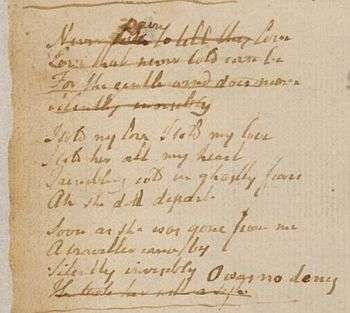 pain
Never seek to tell thy love
Love that never told can be
For the gentle wind does move
silently invisibly
I told my love I told my love
I told her all my heart
Trembling cold in ghastly fears
Ah she did depart
Soon as she was gone from me
A traveller came by
Silently invisibly O was no deny
He took her with a sigh